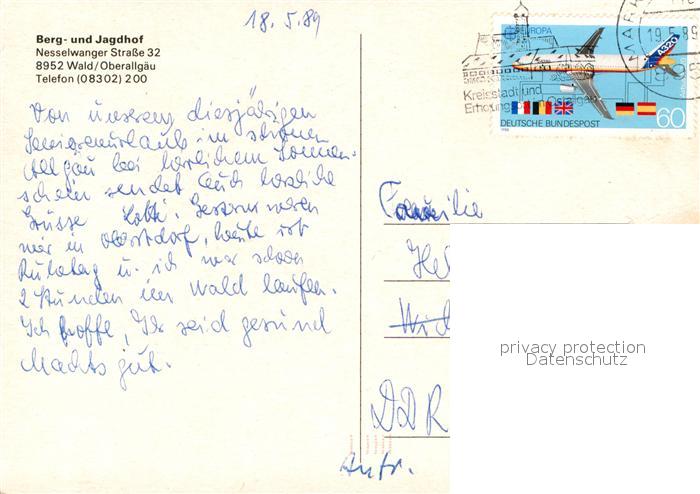 18.5.89
Berg- und Jagdhof
Nesselwanger Straße 32
8952 Wald/Oberallgäu
Telefon (08302) 200
Von unserem diesjährigen
Seniorenurlaub im schönen
Allgäu bei herrlichem Sonnen-
schein sendet Euch herzliche
Grüsse Gestern waren
wir in Oberstdorf, heute ist
Ruhetag u. ich war schon
2 Stunden im Wald laufen.
Ich hoffe, Ihr seid gesund
Machts gut.
EUROPA
A320
19.5.89
Kreisstadt und
DEUTSCHE BUNDESPOST
60
1988
Familie
DDR
privacy protection
Datenschutz